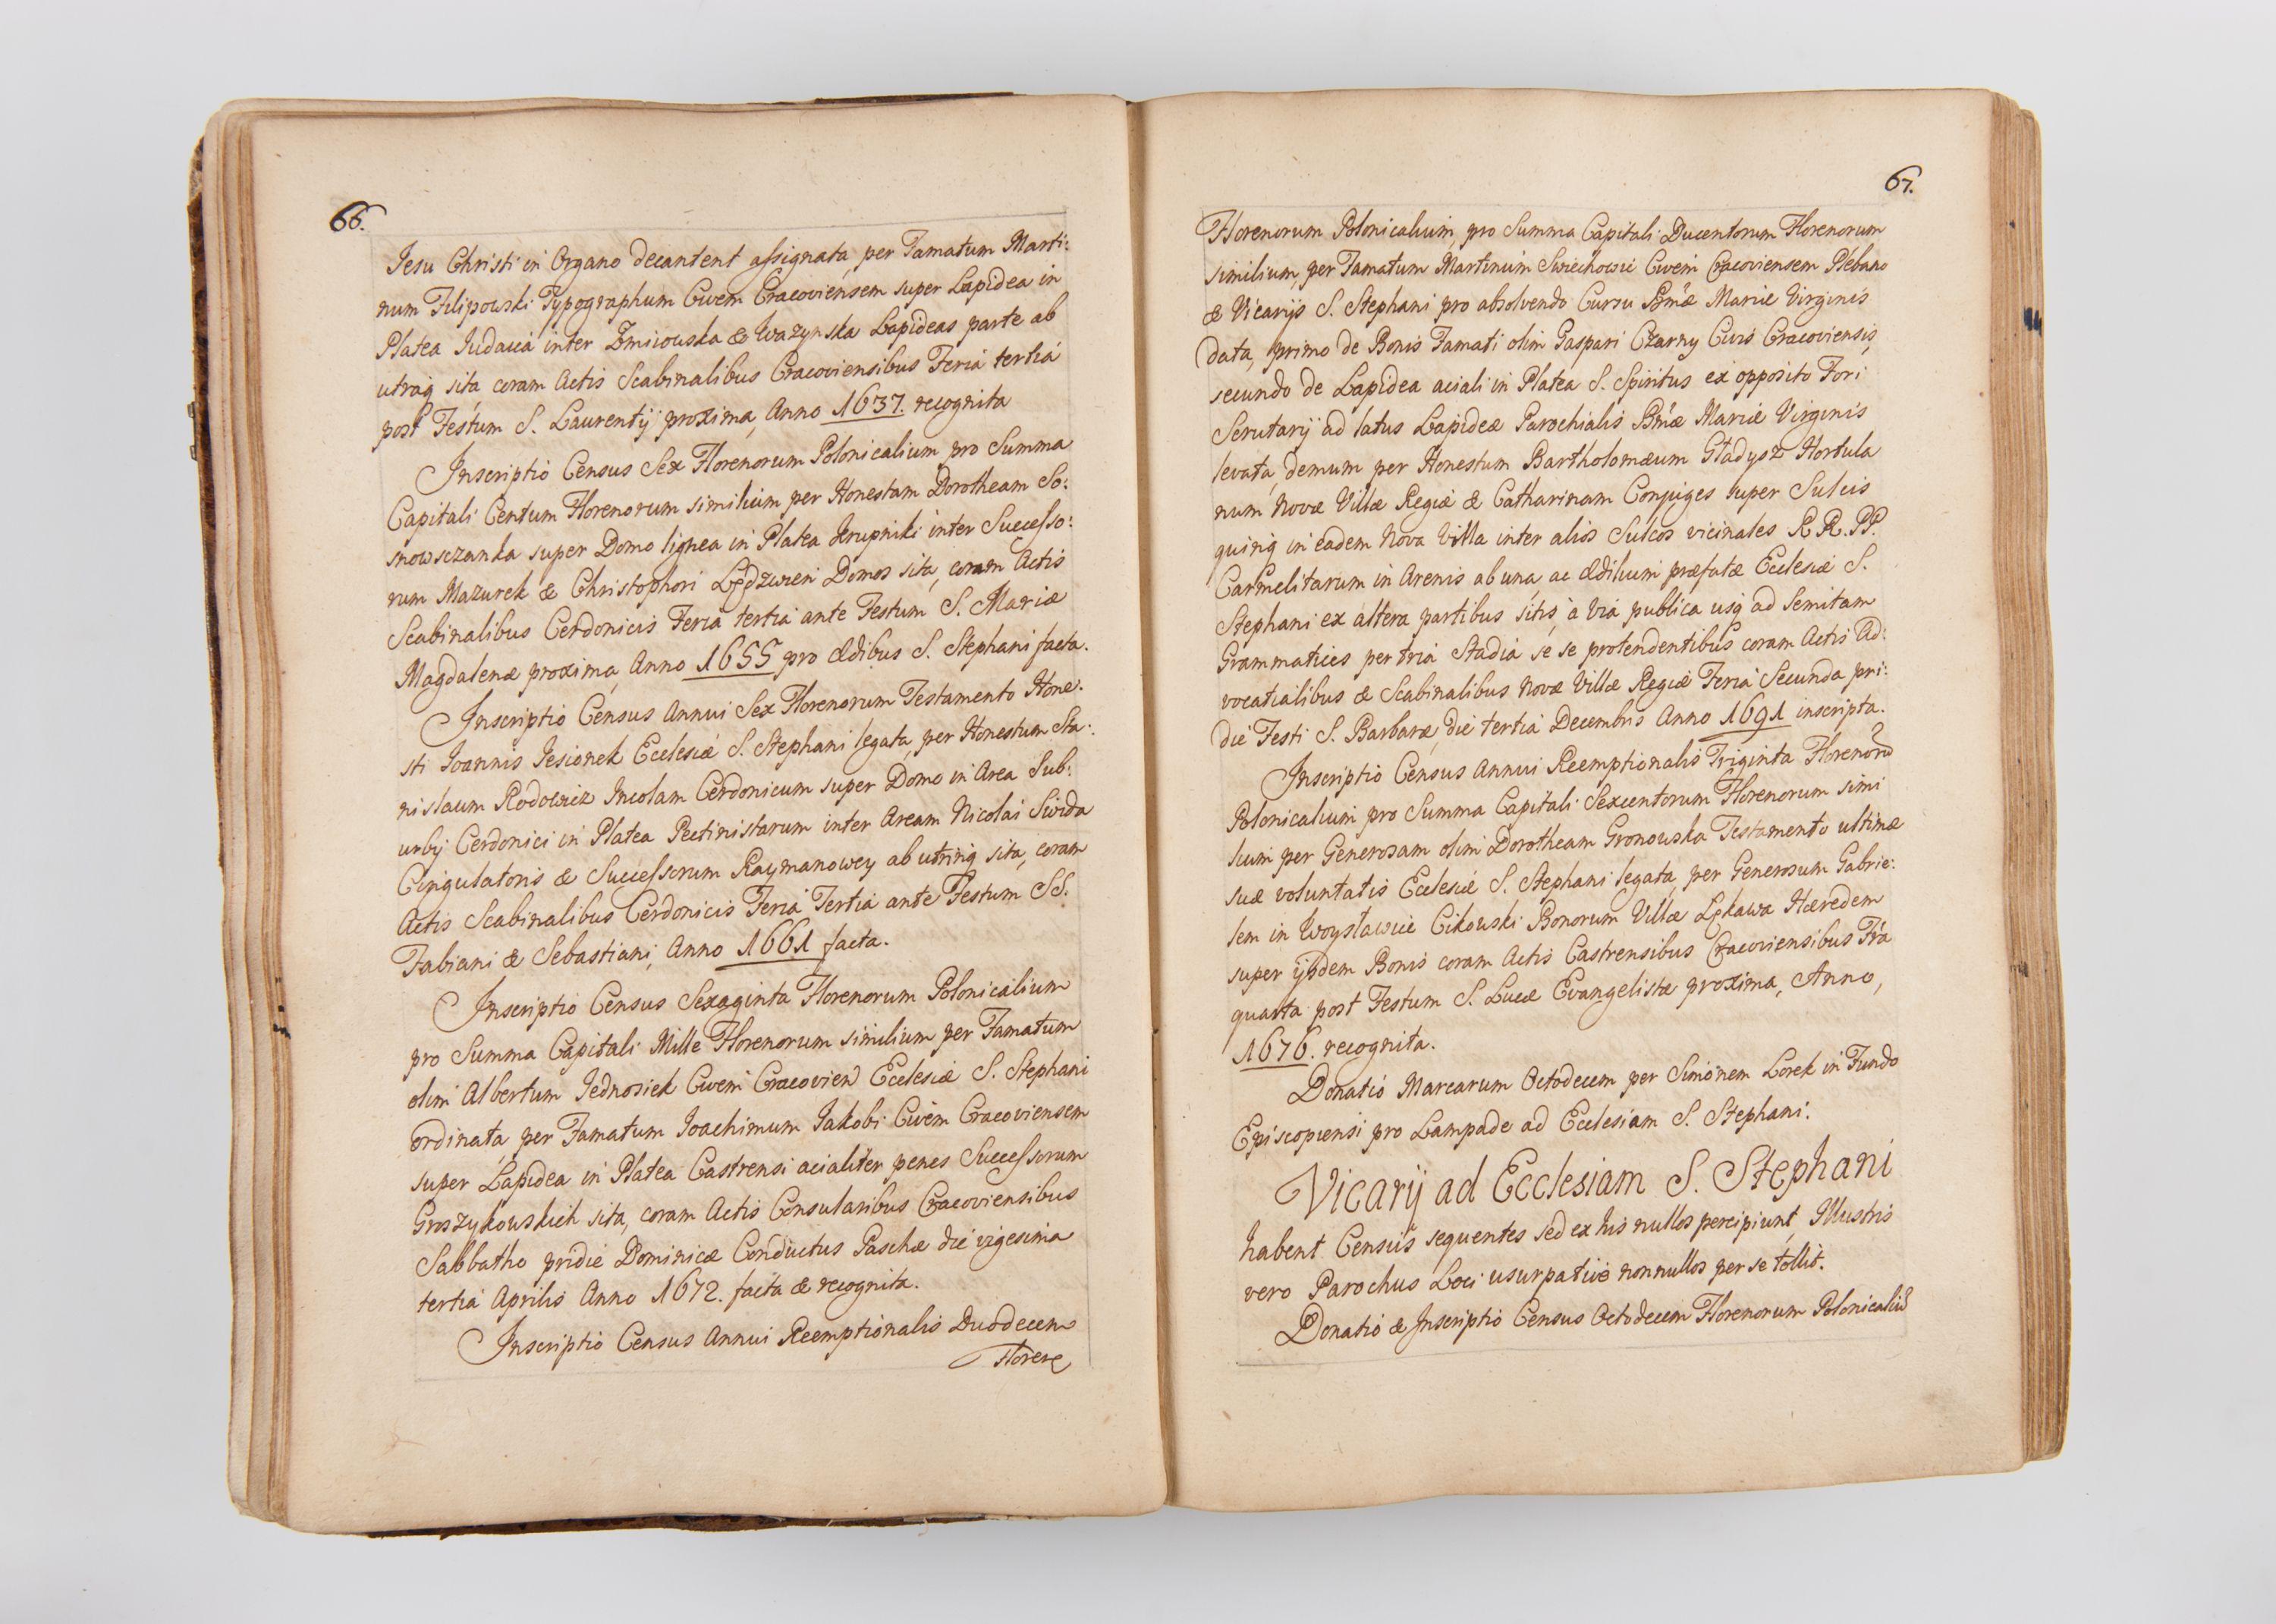 66.
Jesu Christi in Organo decantent assignata, per Famatum Marti:
num Filipowski Typographum Civem Cracoviensem super Lapidea in
Platea Iudaica inter Zmirouska & Wazynska Lapideas parte ab
utraq sita, coram Actis Scabinalibus Cracoviensibus Feria tertia
post Festum S. Laurentij proxima, Anno 1637. recognita
Inscriptio Census Sex Florenorum Polonicalium pro Summa
Capitali Centum Florenorum similium per Honestam Dorotheam So:
snowsczanka super Domo lignea in Platea Krupniki inter Successo:
rum Mazurek & Christophori Lędzwien Domos sita, coram Actis
Scabinalibus Cerdonicis Feria tertia ante Festum S. Mariæ
Magdalenæ proxima, Anno 1655 pro Ædibus S. Stephani facta.
Inscriptio Census Annui Sex Florenorum Testamento Hone:
sti Joannis Jesionek Ecclesiæ S. Stephani legata, per Honestum Sta:
nislaum Rodowicz Incolam Cerdonicum super Domo in Area Sub:
urbij Cerdonici in Platea Pectinistarum inter Aream Nicolai Swida
Cingulatoris & Successorum Raymanowey ab utrinq sita, coram
Actis Scabinalibus Cerdonicis Feria Tertia ante Festum SS.
Fabiani & Sebastiani, Anno 1661 facta.
Inscriptio Census Sexaginta Florenorum Polonicalium
pro Summa Capitali Mille Florenorum similium per Famatum
olim Albertum Jednosiek Civem Cracovien Ecclesiæ S. Stephani
ordinata, per Famatum Joachimum Jakobi Civem Cracoviensem
super Lapidea in Platea Castrensi acialiter penes Successorum
Groszykowskich sita, coram Actis Consularibus Cracoviensibus
Sabbatho pridie Dominicæ Conductus Paschæ die vigesima
tertia Aprilis Anno 1672. facta & recognita.
Inscriptio Census Annui Reemptionalis Duodecem
Flore
67.
Florenorum Polonicalium, pro Summa Capitali Ducentorum Florenorum
similium, per Famatum Martinum Swiechowic Civem Cracoviensem Plebano
& Vicarijs S. Stephani pro absolvendo Cursu Bmæ Mariæ Virginis
data, primo de Bonis Famati olim Gaspari Czarny Civis Cracoviensis,
secundo de Lapidea aciali in Platea S. Spiritus ex opposito Fori
Scrutarij ad latus Lapideæ Parochialis Bmæ Mariæ Virginis
levata, demum per Honestum Bartholomæum Gładysz Hortula
num Novæ Villæ Regiæ & Catharinam Conjuges super Sulcis
quinq in eadem Nova Villa inter alios Sulcos vicinales R R. PP.
Carmelitarum in Arenis ab una, ac Ædilium præfatæ Ecclesiæ S.
Stephani ex altera partibus sitis, a Via publica usq ad Semitam
Grammatices per tria Stadia se se protendentibus coram Actis Ad:
vocatialibus & Scabinalibus Novæ Villæ Regiæ Feria Secunda pri:
die Festi S. Barbaræ, die tertia Decembris Anno 1691 inscripta.
Inscriptio Census Annui Reemptionalis Triginta Florenorũ
Polonicalium pro Summa Capitali Sexcentorum Florenorum simi
lium per Generosam olim Dorotheam Gronouska Testamento ultimæ
suæ voluntatis Ecclesiæ S. Stephani legata, per Generosum Gabrie:
lem in Woysławice Cikowski Bonorum Villæ Lękawa Hæredem
super ijsdem Bonis coram Actis Castrensibus Cracoviensibus Fra
quarta post Festum S. Lucæ Evangelistæ proxima, Anno,
1676. recognita.
Donatio Marcarum Octodecem per Simonem Lorek in Fundo
Episcopiensi pro Lampade ad Ecclesiam S. Stephani.
Vicarij ad Ecclesiam S. Stephani
habent Census sequentes, sed ex his nullos percipiunt, Illustris
vero Parochus Loci usurpative nonnullos per se tollit.
Donatio & Inscriptio Census Octodecem Florenorum Polonicaliũ